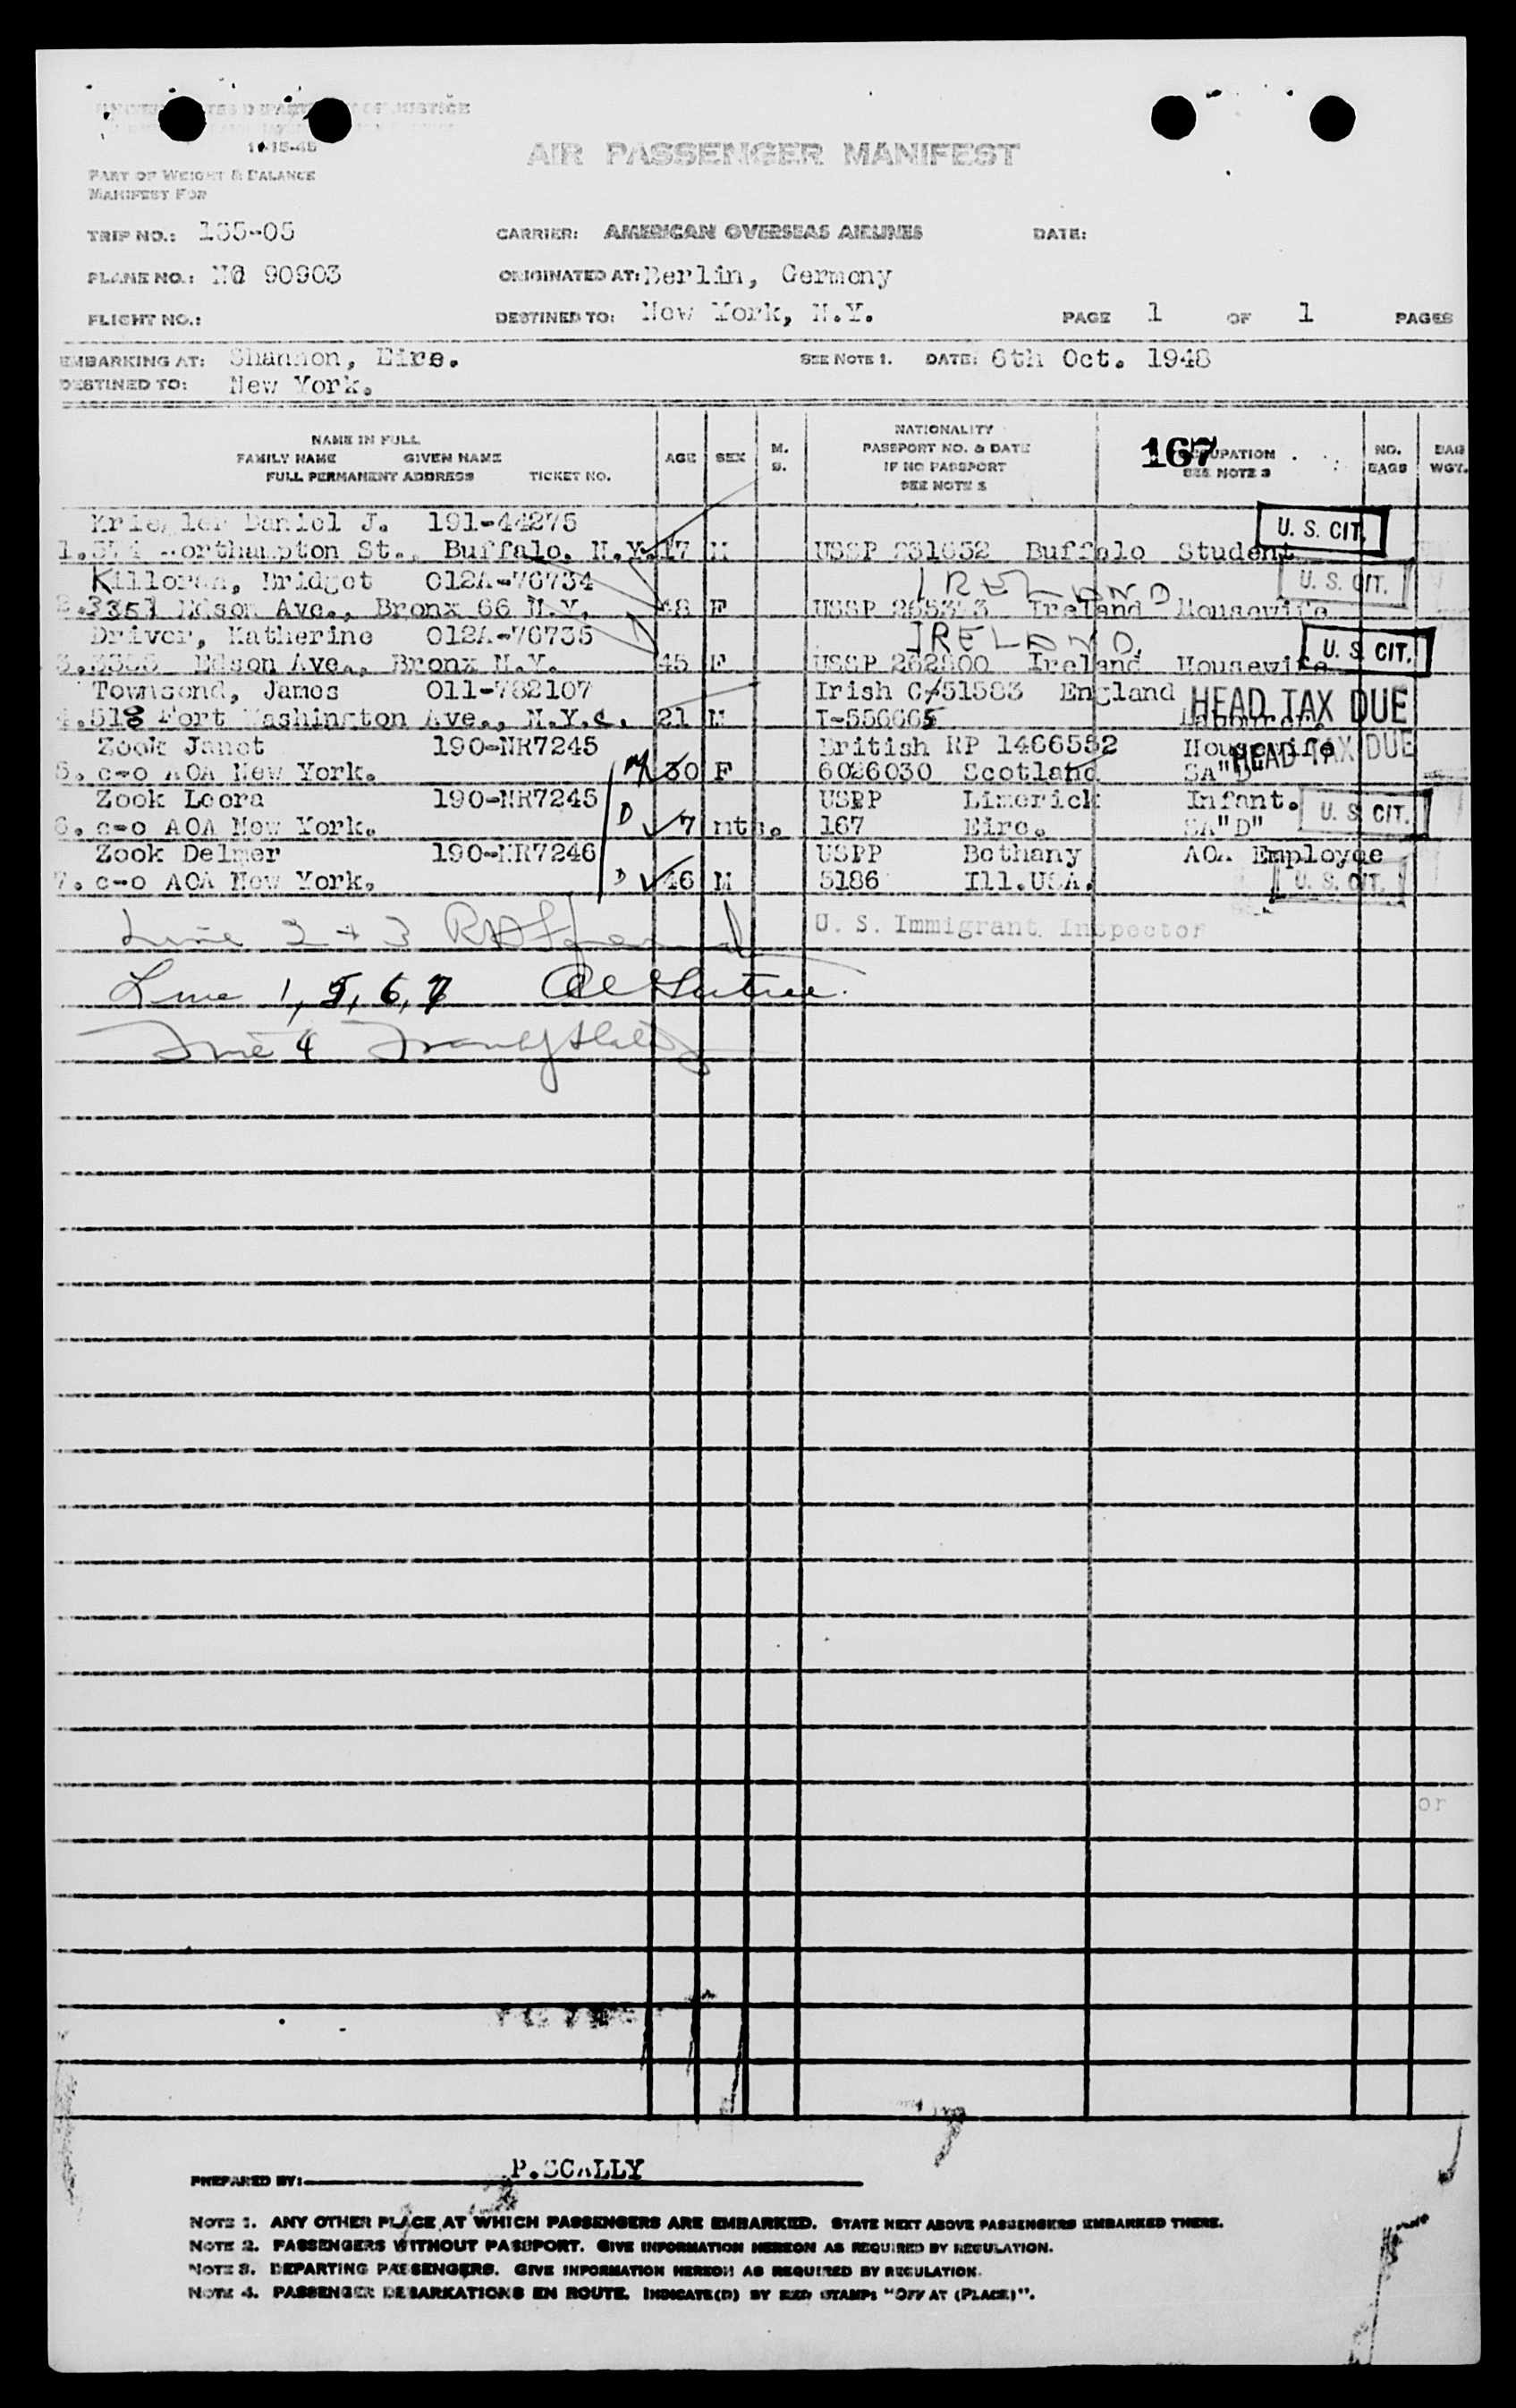 JUSTICE
AIR PASSENGER MANIFEST
PART OF WEIGHT & BALANCE
MANIFEST FOR
TRIP NO.: CARRIER: AMERICAN OVERSEAS AIRLINES DATE:
PLANE NO.: 90903 ORIGINATED AT: Berlin, Germony
FLIGHT NO.: DESTINED TO: New York, N.Y. PAGE 1 OF 1 PAGES
EMBARKING AT: Shannon, Eire. SEE NOTE 1. DATE: 6th Oct. 1948
DESTINED TO: New York.
NAME IN FULL
FAMILY NAME GIVEN NAME
FULL PERMANENT ADDRESS TICKET NO.
AGE SEX M. S.
NATIONALITY
PASSPORT NO. & DATE
IF NO PASSPORT
SEE NOTE 2
167
OCCUPATION
SEE NOTE 3
NO. BAGS
BAG WGT.
Daniel J. 191-44275 U. S. CIT.
1. Northampton St., Buffalo. N.Y. 17 M USPP Buffalo Student
Killoran, Bridget 012A-70734 IRELAND U. S. CIT.
2. Edson Ave., Bronx 66 N.Y. 48 F USPP Ireland Housewife
Driver, Katherine 012A-70735 IRELAND U. S. CIT.
3. Edson Ave., Bronx N.Y. 45 F USPP Ireland Housewife
Townsend, James 011-782107 Irish England HEAD TAX DUE
4. 518 Fort Washington Ave., N.Y.C. 21 M
Zook Janet 190-NR7245 British RP 1466552 Housewife HEAD TAX DUE
5. c-o AOA New York. M 30 F 6026030 Scotland SA"D"
Zook Leora 190-NR7245 USPP Limerick Infant. U. S. CIT.
6. c-o AOA New York. D 7 mts. 167 Eire. SA"D"
Zook Delmer 190-NR7246 USPP Bethany AOA Employee
7. c-o AOA New York. D 46 M 5186 Ill.USA. U. S. CIT.
Line 2 + 3 U. S. Immigrant Inspector
Line 1, 5, 6, 7
Line 4
or
PREPARED BY: P.SCALLY
NOTE 1. ANY OTHER PLACE AT WHICH PASSENGERS ARE EMBARKED. STATE NEXT ABOVE PASSENGERS EMBARKED THERE.
NOTE 2. PASSENGERS WITHOUT PASSPORT. GIVE INFORMATION HEREON AS REQUIRED BY REGULATION.
NOTE 3. DEPARTING PASSENGERS. GIVE INFORMATION HEREON AS REQUIRED BY REGULATION.
NOTE 4. PASSENGER DEBARKATIONS EN ROUTE. INDICATE(D) BY RED STAMP: "OFF AT (PLACE)".